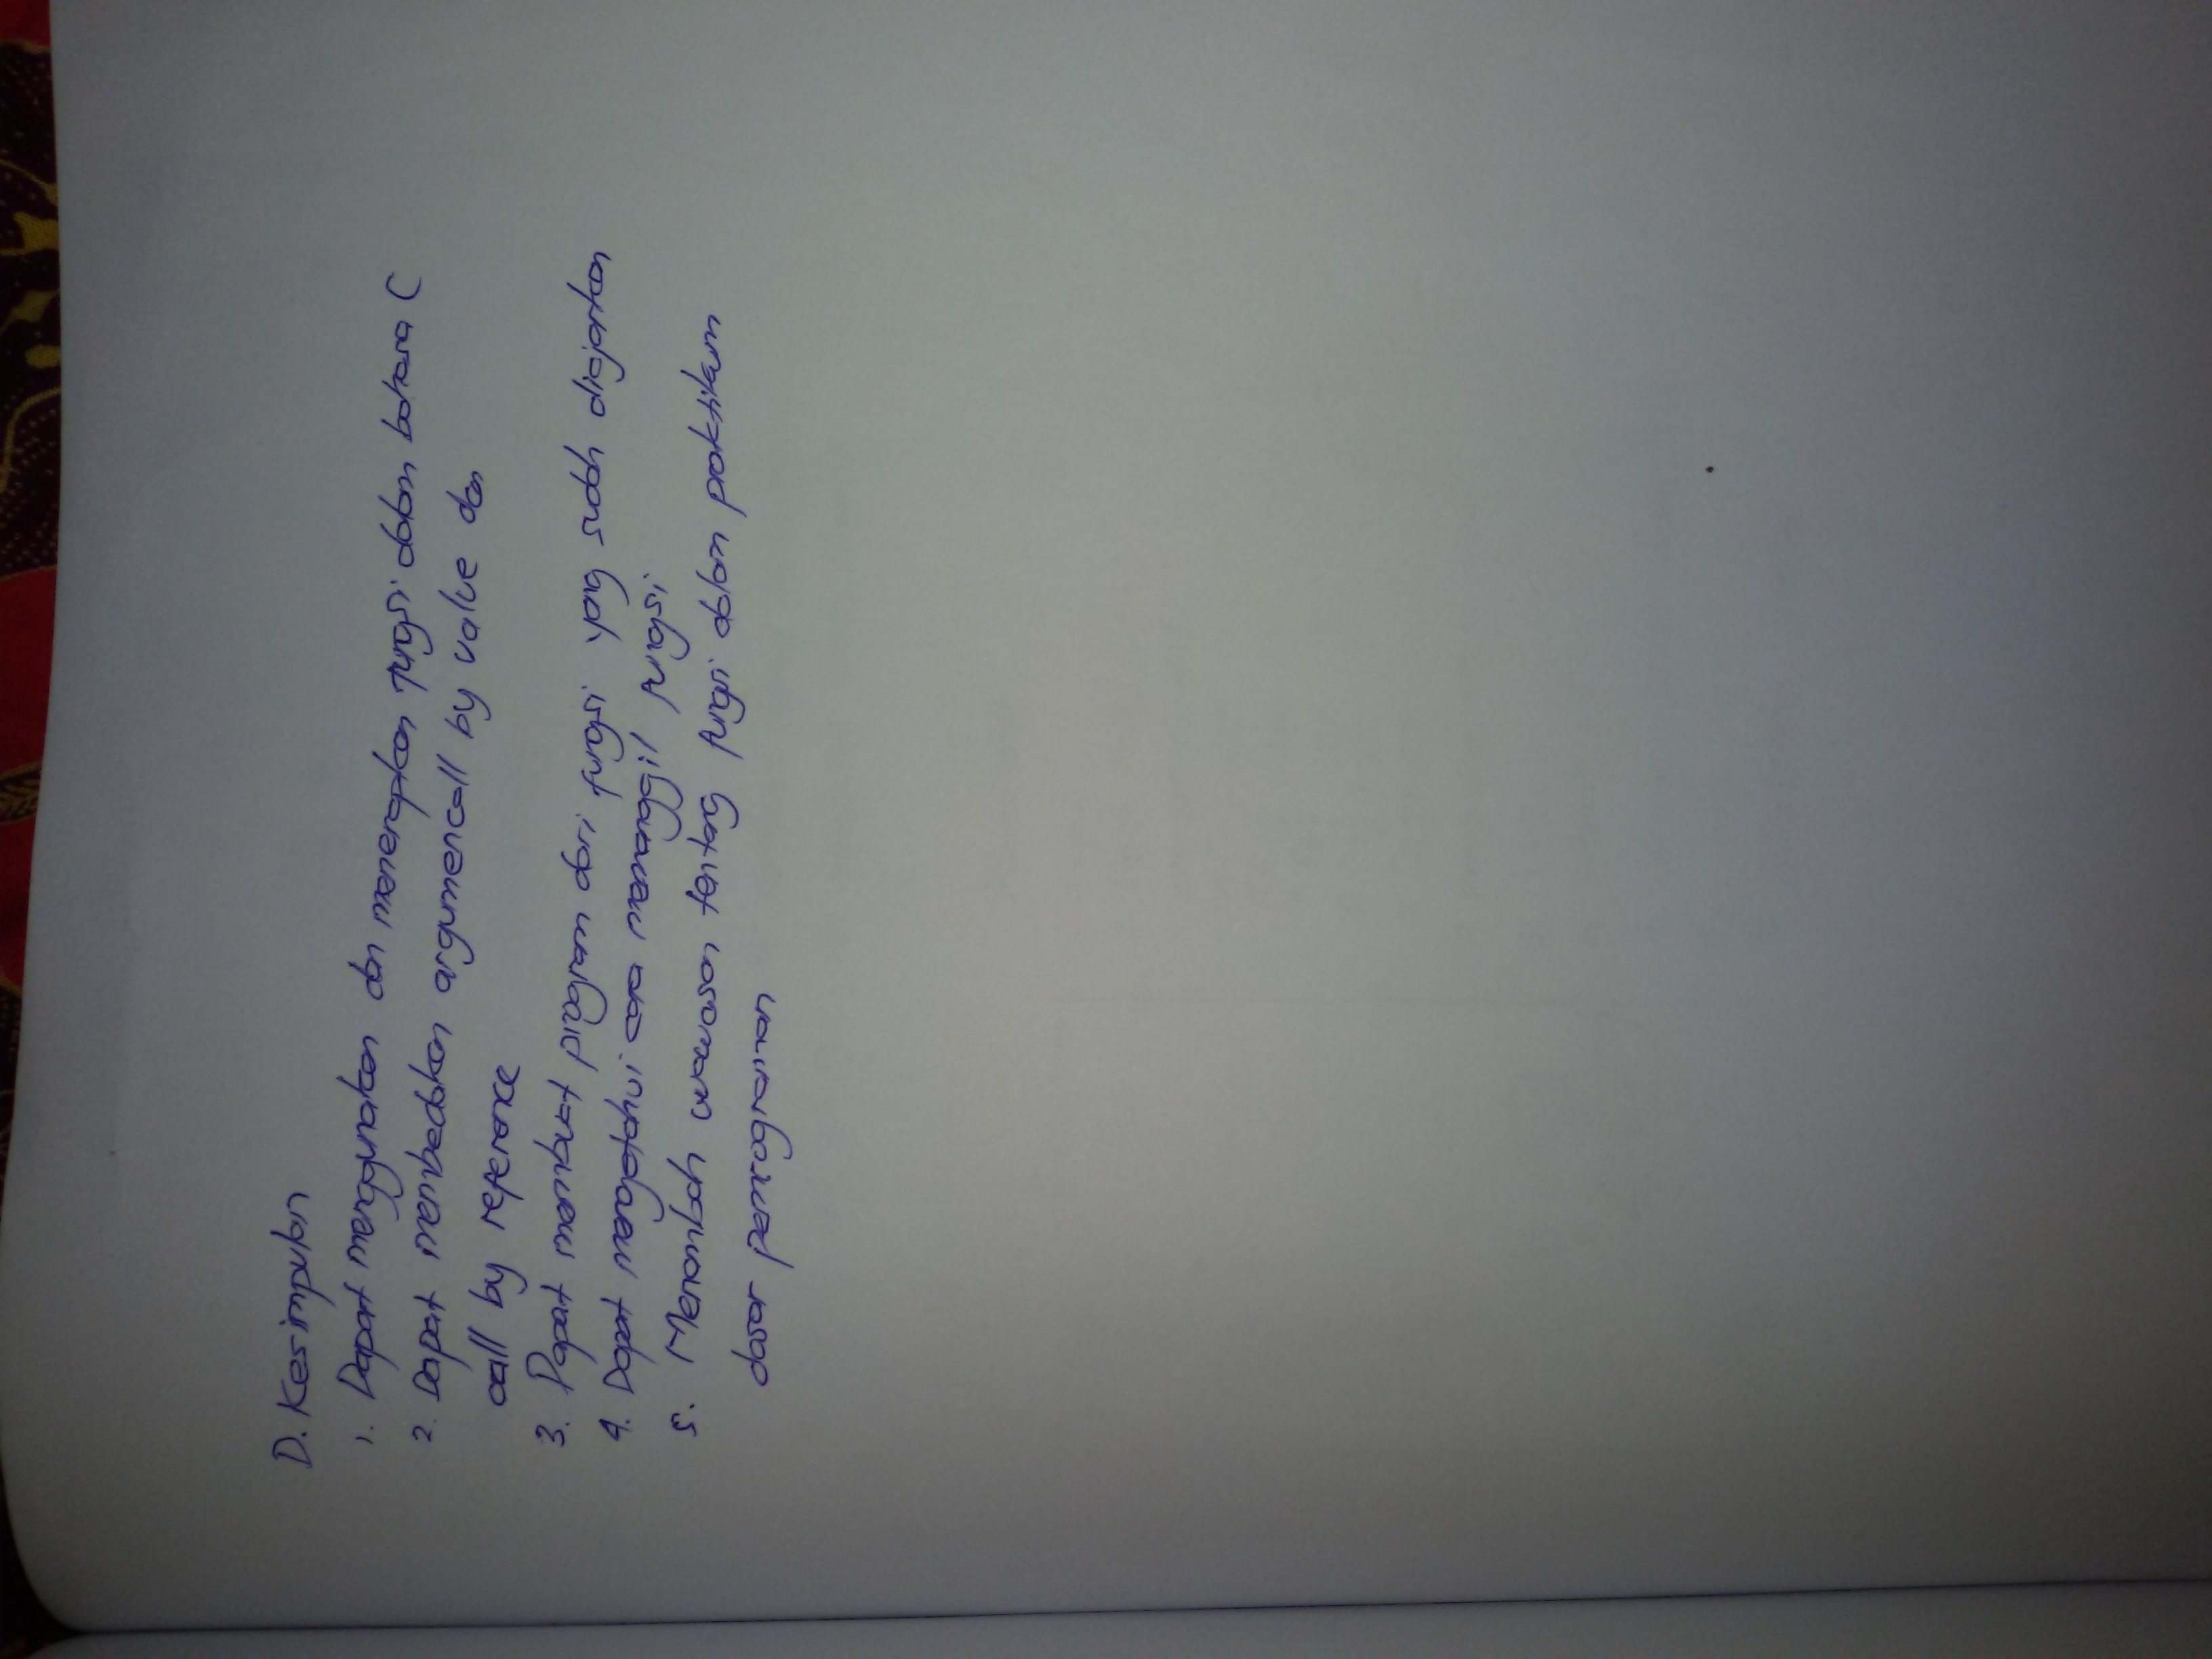 D. Kesimpulan
1. Dapat menggunakan dan menerapkan fungsi dalam bahasa C
2. Dapat membedakan argumen call by value dan
call by reference
3. Dapat membuat program dari fungsi yang sudah diajarkan
4. Dapat mengetahui cara memanggil fungsi
5. Menambah wawasan tentang fungsi dalam praktikum
dasar pemrograman